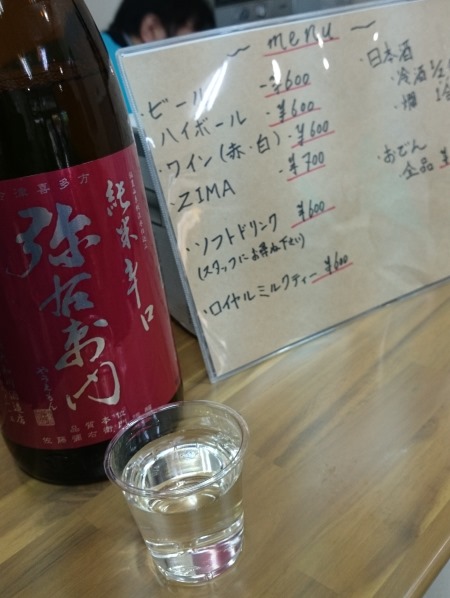 ～ menu ～
・ビール -¥600
・ハイボール -¥600
・ワイン(赤・白) -¥600
・ZIMA -¥700
・ソフトドリンク ¥600
(スタッフにお尋ね下さい)
・ロイヤルミルクティー ¥600
・日本酒
冷酒
・燗
・おでん
全品 ¥
津喜多方
純米辛口
弥右衛門
やえもん